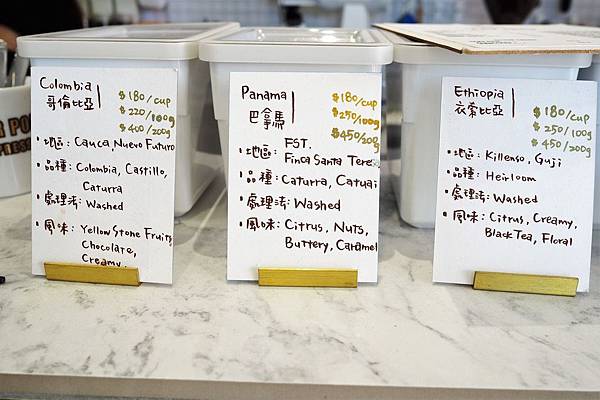 Colombia
哥倫比亞
$180/cup
$220/100g
$400/200g
・地區: Cauca, Nuevo Futuro
・品種: Colombia, Castillo,
Caturra
・處理法: Washed
・風味: Yellow Stone Fruits
Chocolate,
Creamy.
Panama
巴拿馬
$180/cup
$250/100g
$450/200g
・地區: FST.
Finca Santa Teres
・品種: Caturra, Catuai
・處理法: Washed
・風味: Citrus, Nuts,
Buttery, Caramel
Ethiopia
衣索比亞
$180/cup
$250/100g
$450/200g
・地區: Killenso, Guji
・品種: Heirloom
・處理法: Washed
・風味: Citrus, Creamy,
Black Tea, Floral